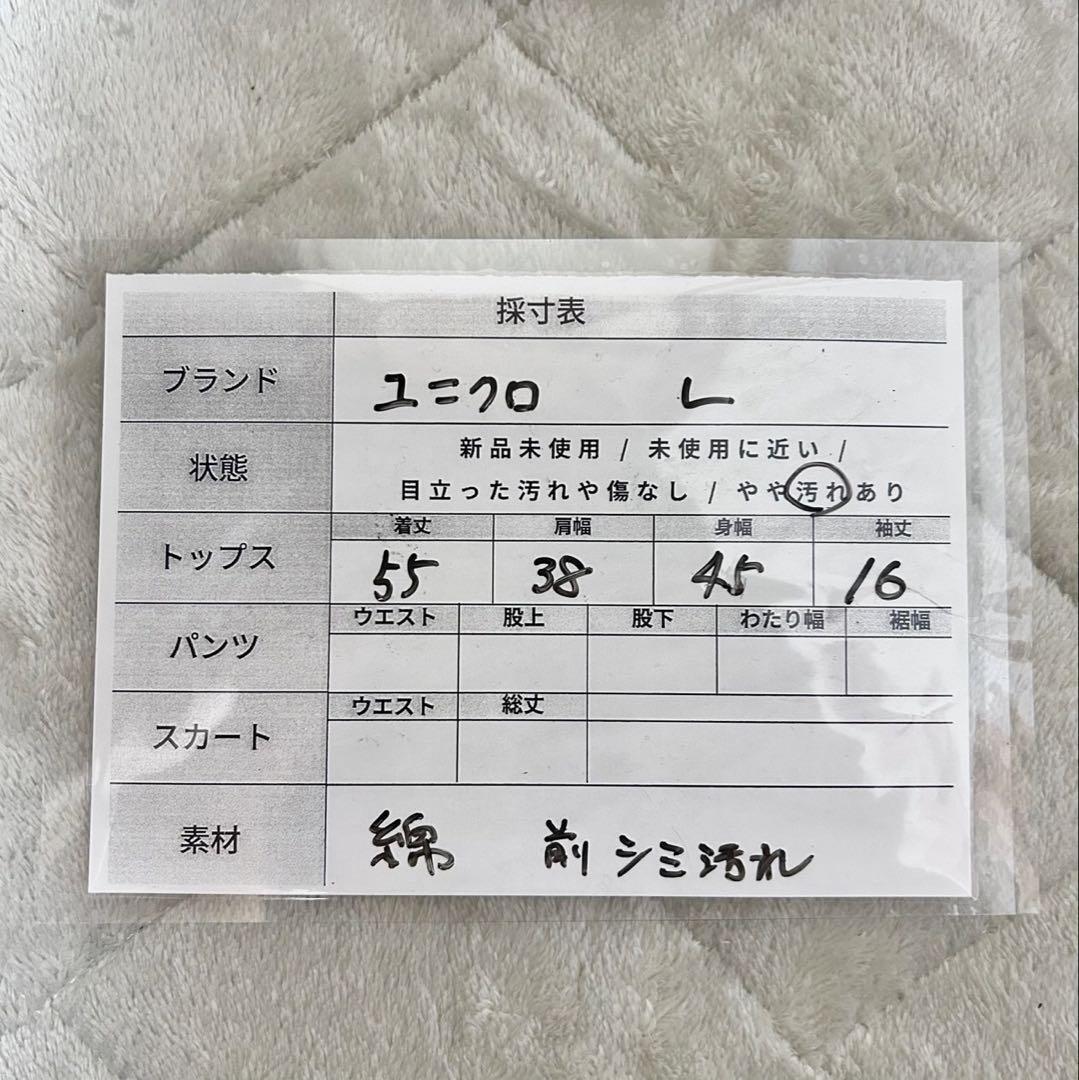 採寸表
ブランド ユニクロ L
状態 新品未使用 / 未使用に近い /
目立った汚れや傷なし / やや汚れあり
着丈 肩幅 身幅 袖丈
トップス 55 38 45 16
ウエスト 股上 股下 わたり幅 裾幅
パンツ
ウエスト 総丈
スカート
素材 綿 前 シミ汚れ